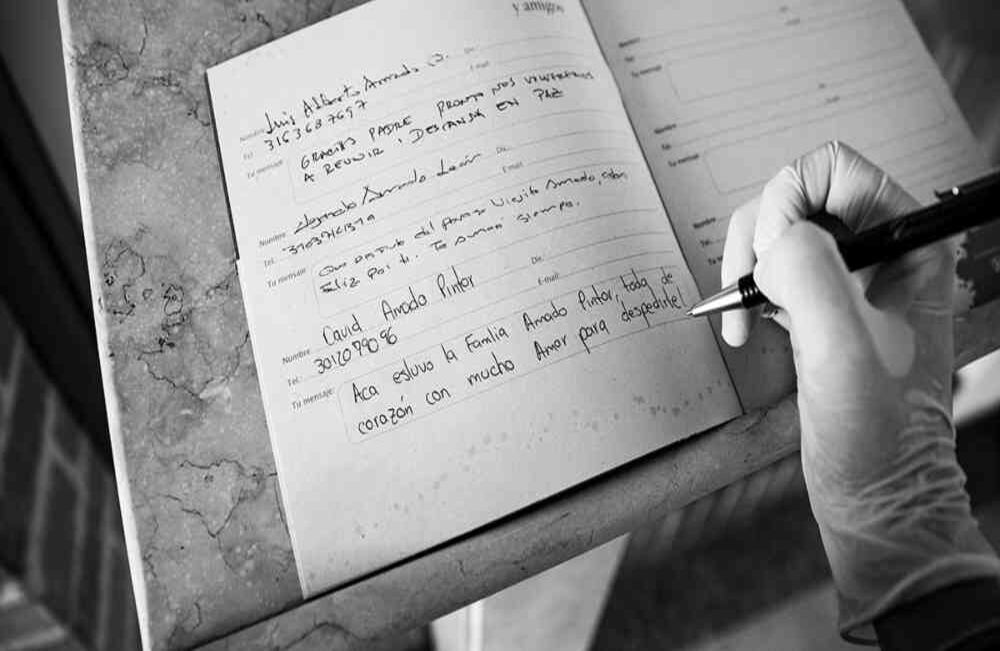 y amigos
Nombre: Luis Alberto Amado O.
Tel: 3163687697
Tu mensaje: GRACIAS PADRE PRONTO NOS VOLVEREMOS
A REUNIR, DESCANSA EN PAZ
Dir.
E-mail
Nombre: Amado León
Tel.
Dir.
E-mail
Tu mensaje: Que del Viejito Amado,
Feliz Por ti. Te siempre.
Nombre: David Amado Pintor
Tel:
Dir.
E-mail:
Tu mensaje: Aca estuvo la Familia Amado Pintor, toda de
corazón con mucho Amor para despedirte!
Nombre
Tel.
Tu mensaje
Nombre
Tel.
Tu mensaje
Nombre
Tel.